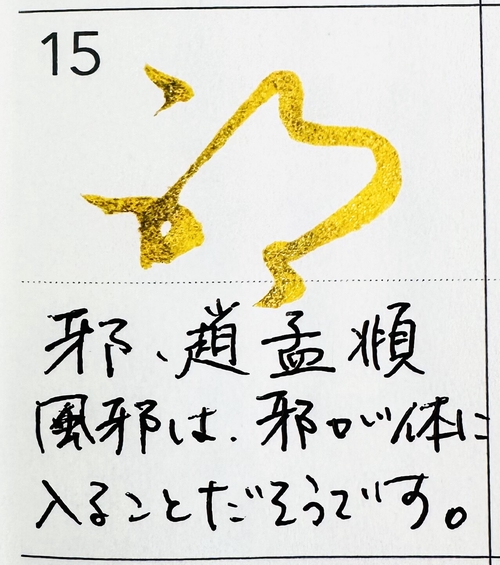 15
邪
邪、趙孟頫
風邪は、邪が体に
入ることだそうです。